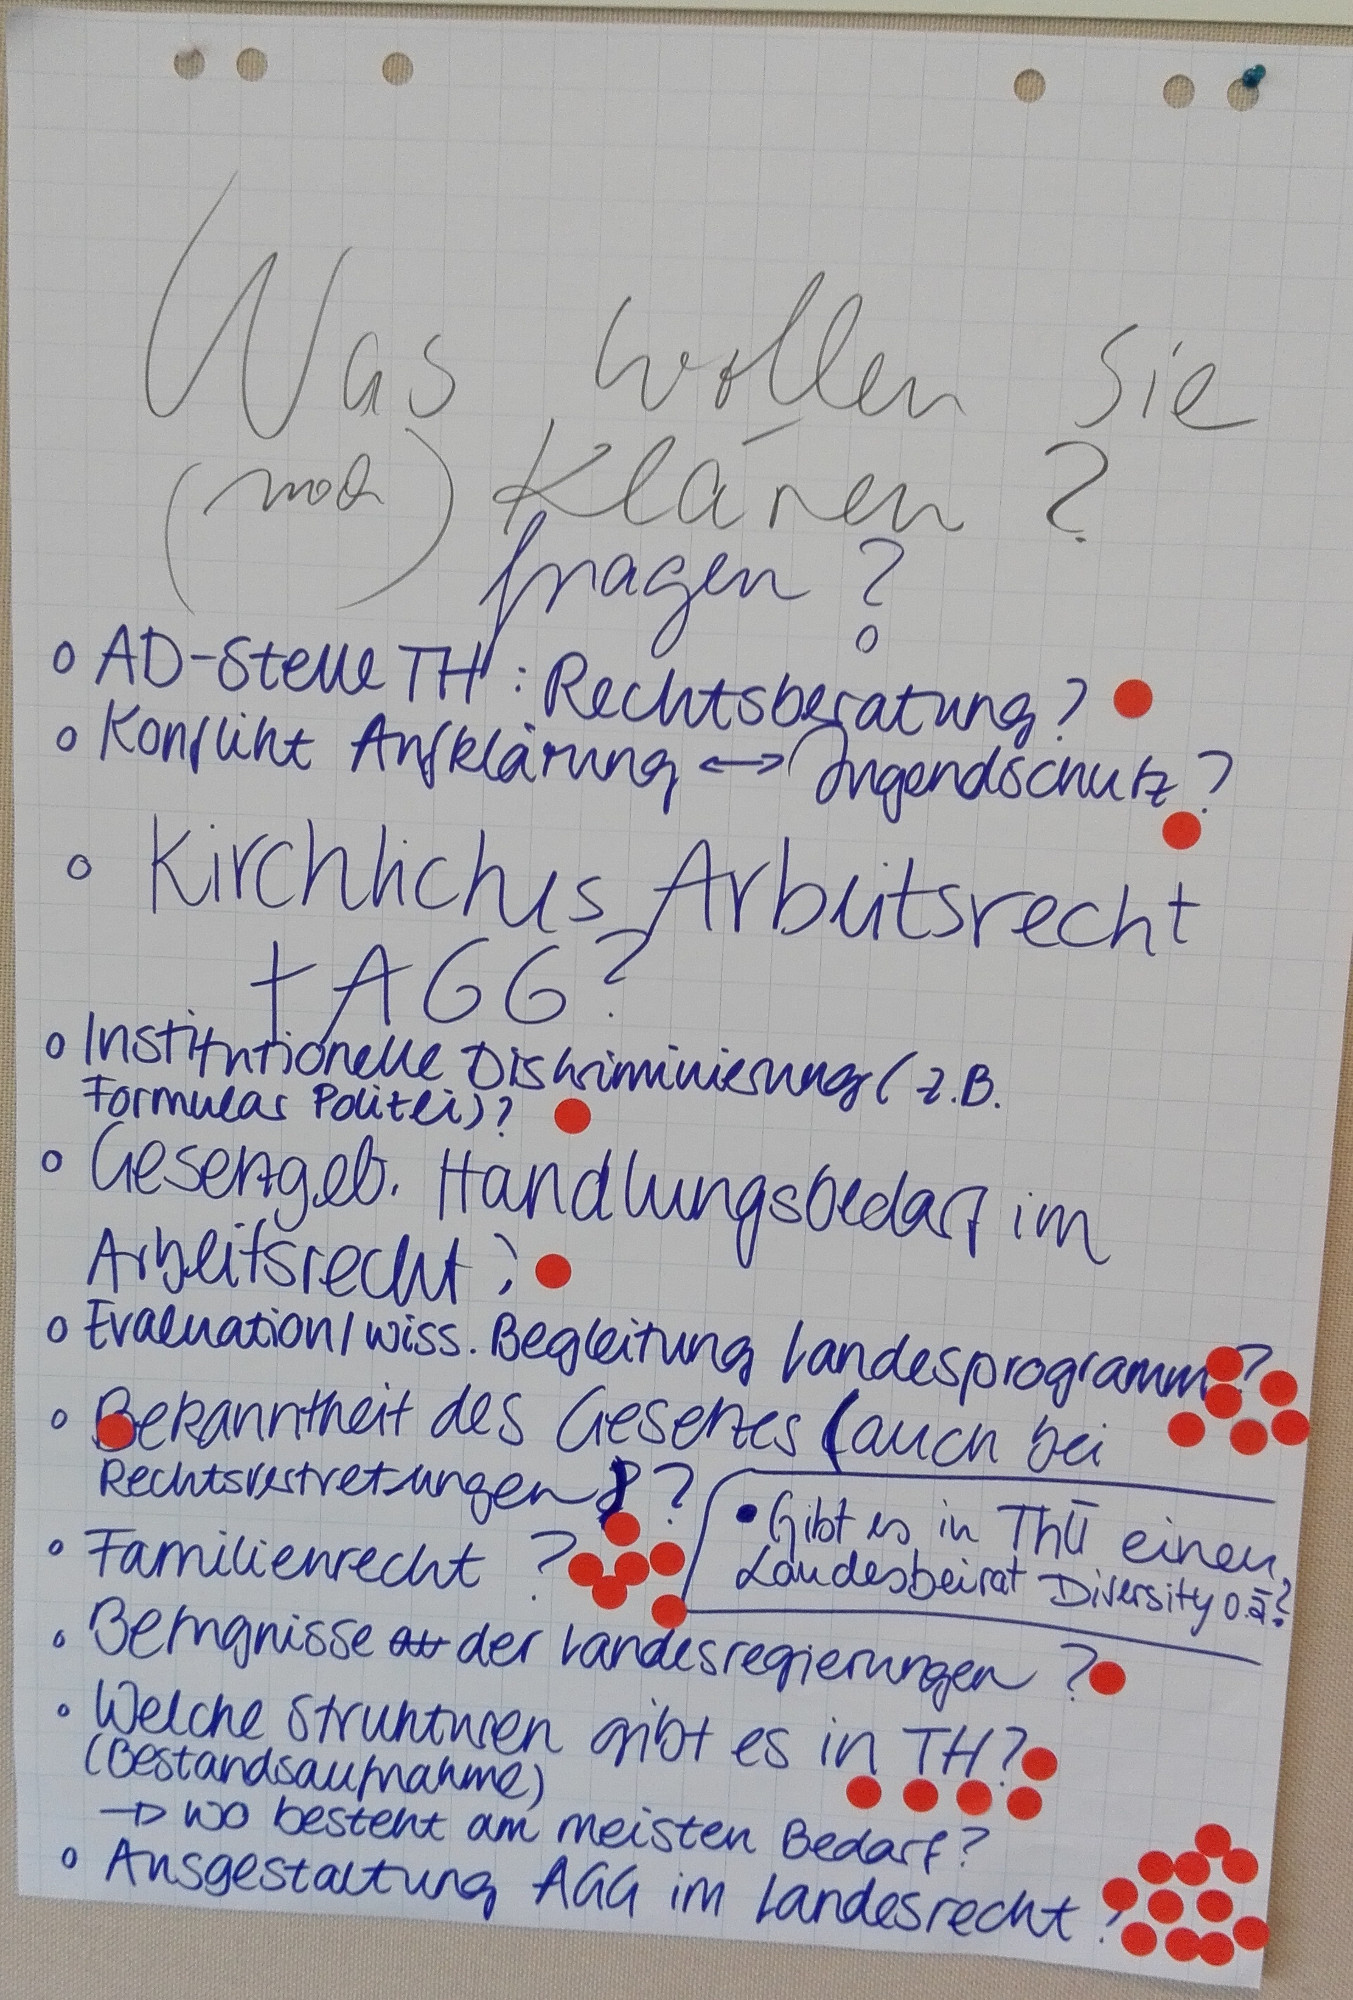 Was wollen Sie
(noch) Klären?
fragen?
o AD-Stelle TH: Rechtsberatung?
o Konflikt Aufklärung ↔ Jugendschutz?
o Kirchliches Arbeitsrecht
+ AGG?
o Institutionelle Diskriminierung (z.B.
Formular Polizei)?
o Gesetzgeb. Handlungsbedarf im
Arbeitsrecht?
o Evaluation/wiss. Begleitung Landesprogramm?
o Bekanntheit des Gesetzes (auch bei
Rechtsvertretungen)?
• Gibt es in Thü einen
Landesbeirat Diversity o.ä.?
o Familienrecht?
o Befugnisse der Landesregierungen?
o Welche Strukturen gibt es in TH?
(Bestandsaufnahme)
→ wo besteht am meisten Bedarf?
o Ausgestaltung AGG im Landesrecht?